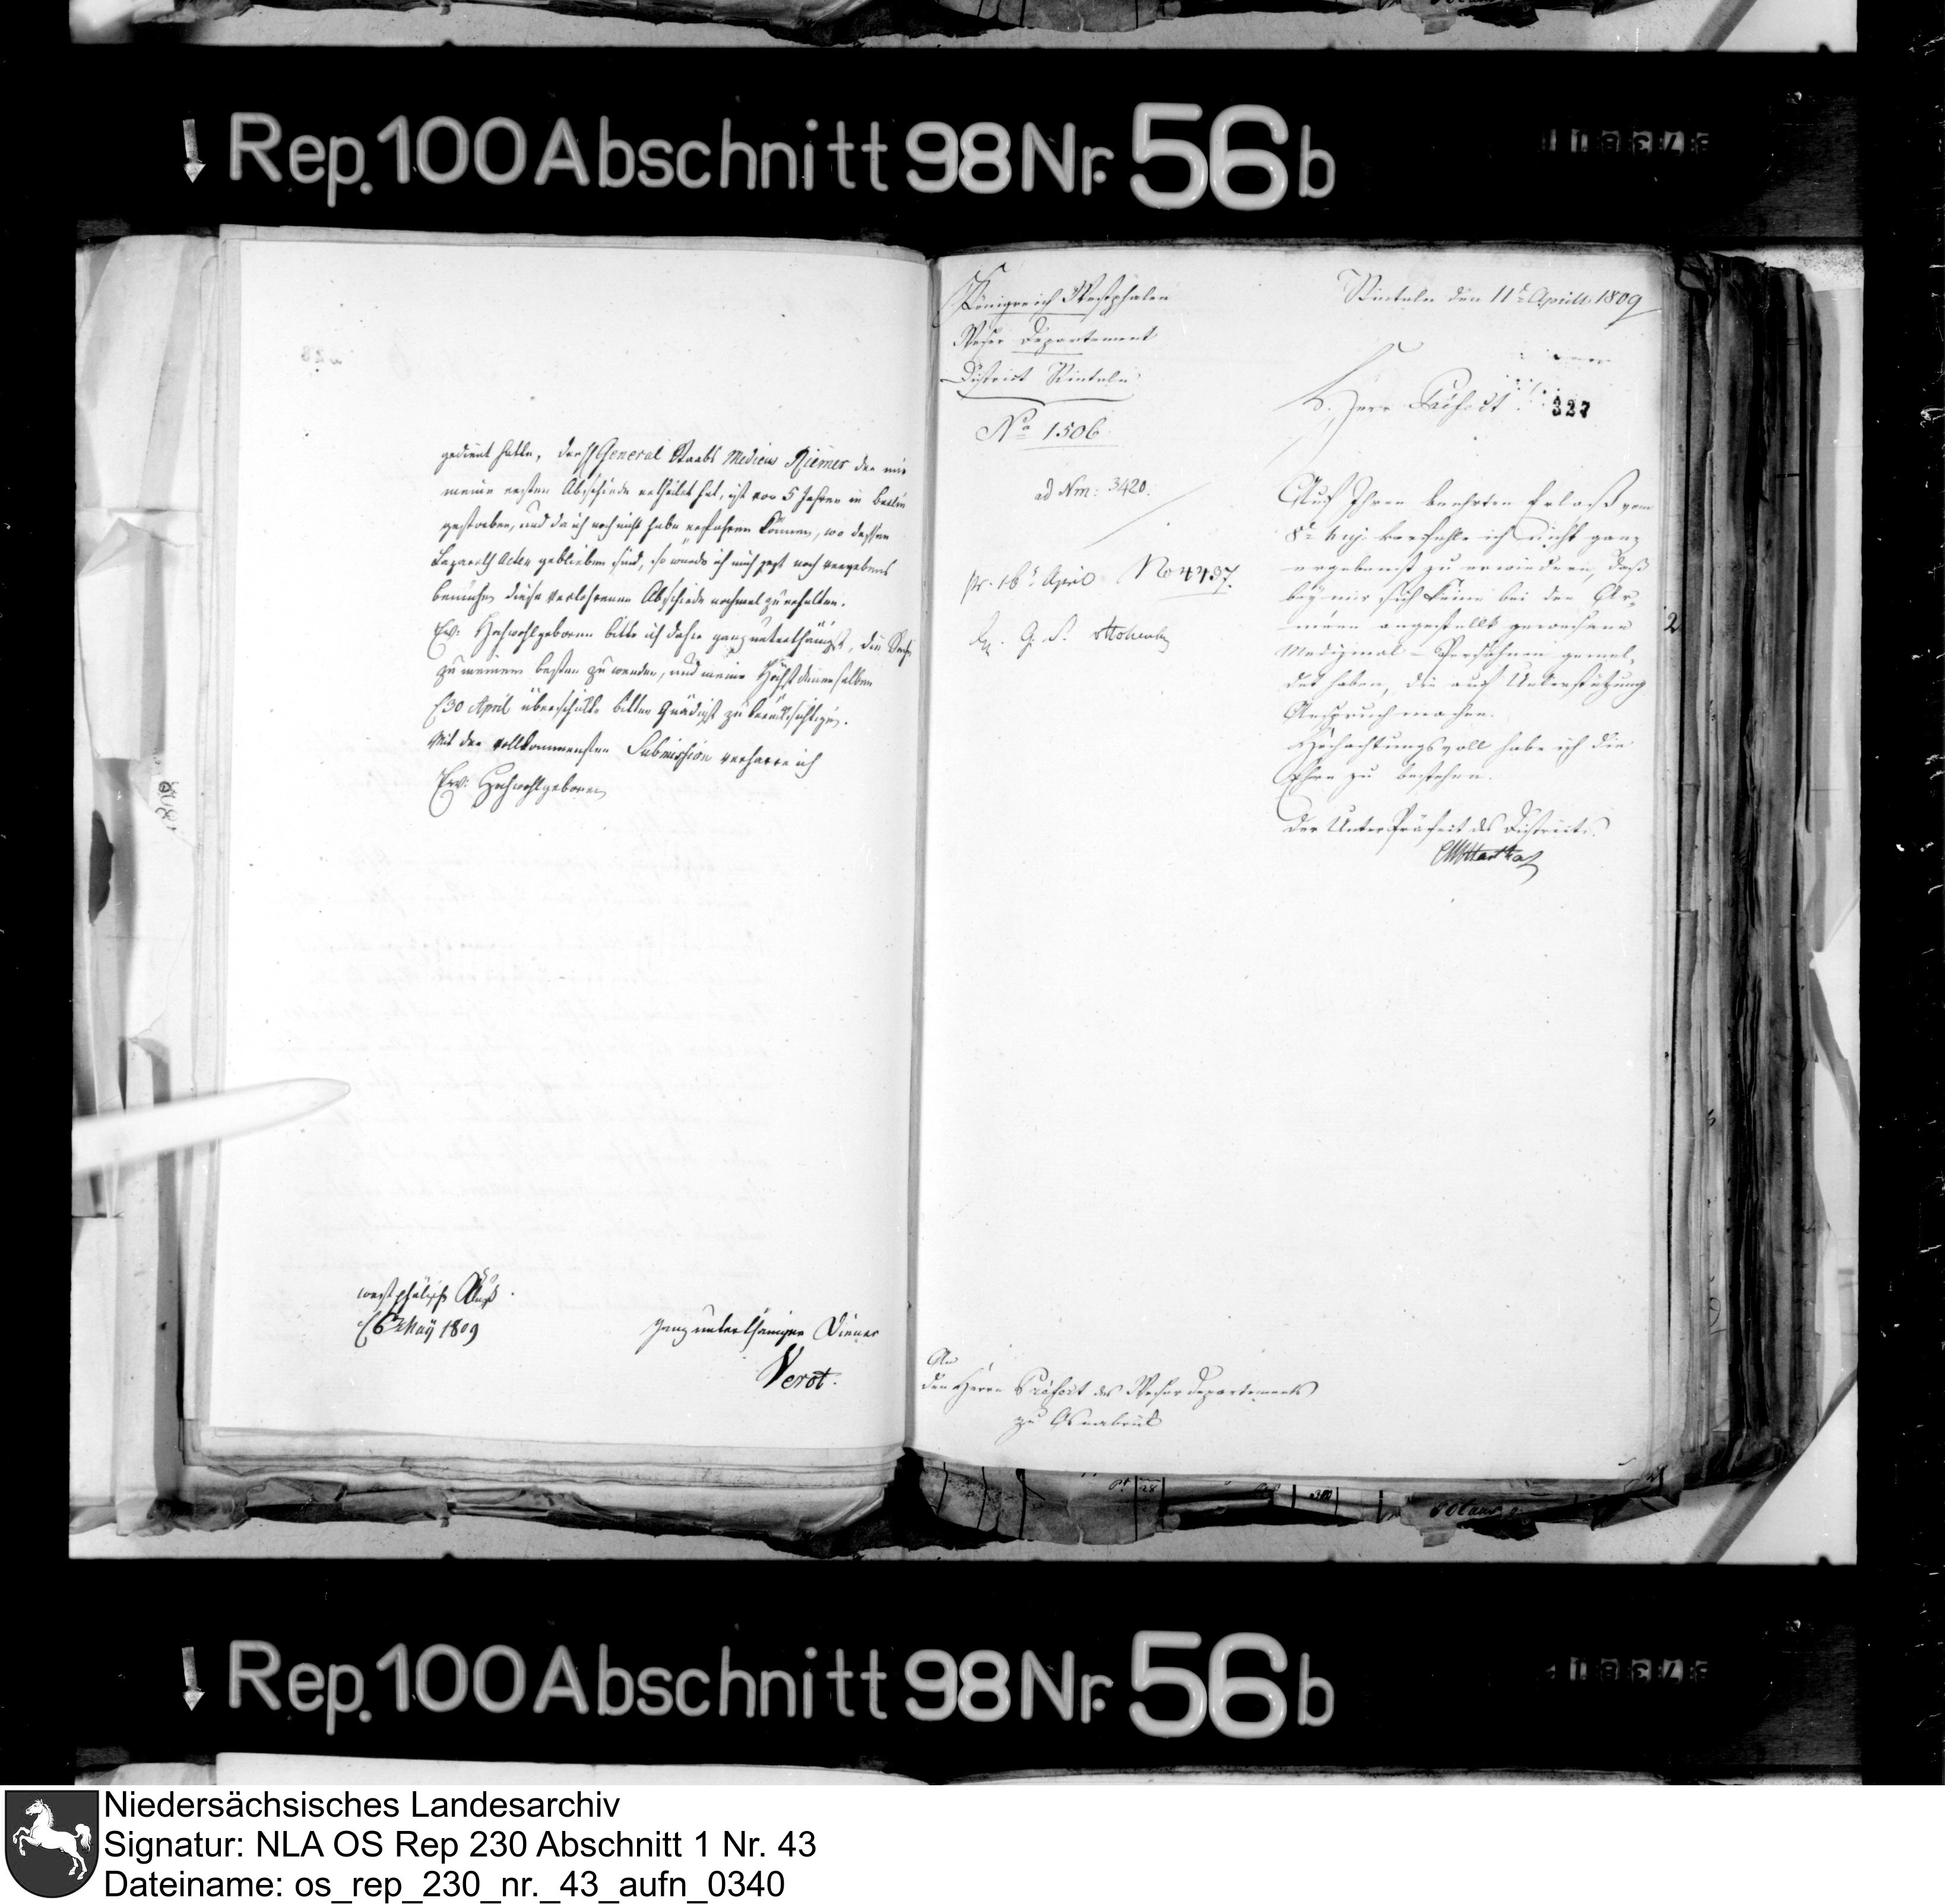 Rep. 100 Abschnitt 98 Nr. 56b
gedient hatte, der General Staabs Medicus Riemer der mir
meine ersten Abschiede ertheilet hat, ist vor 5 Jahren in Berlin
gestorben, und da ich noch nicht habe erfahren können, wo dessen
Lazareth Acten geblieben sind, so würde ich mich jezt noch vergebens
bemühen diese verlohrenen Abschiede nochmal zu erhalten.
Ew: Hochwohlgeboren bitte ich daher ganz unterthänigst, die Sache
zu meinem besten zu wenden, und meine Höchstdenenselben
30 April überschickte bitten Gnädigst zu berücksichtigen.
Mit der vollkommensten Submission verharre ich
Ew: Hochwohlgeboren
westphälisch
6 May 1809
ganz unterthäniger Diener
Verot.
Königreich Westphalen
Weser Departement
District Rinteln
No 1506
ad Nm: 3420.
pr. 16 April No 4437.
Rinteln den 11t Aprill 1809
Herr Präfect
327
Auf Ihren beehrten Erlaß vom
8t huj. verfehle ich nicht ganz
ergebenst zu erwiedern, daß
bey mir sich keine bei den Ar-
meen angestellt gewesene
Medizinal-Persohnen gemel-
det haben, die auf Unterstützung
Anspruch machen.
Hochachtungsvoll habe ich die
Ehre zu bestehen.
Der Unter Präfect des Districts.
2
An
den Herrn Präfect des Weser departements
zu Osnabrück
Rep. 100 Abschnitt 98 Nr. 56b
Niedersächsisches Landesarchiv
Signatur: NLA OS Rep 230 Abschnitt 1 Nr. 43
Dateiname: os_rep_230_nr._43_aufn_0340